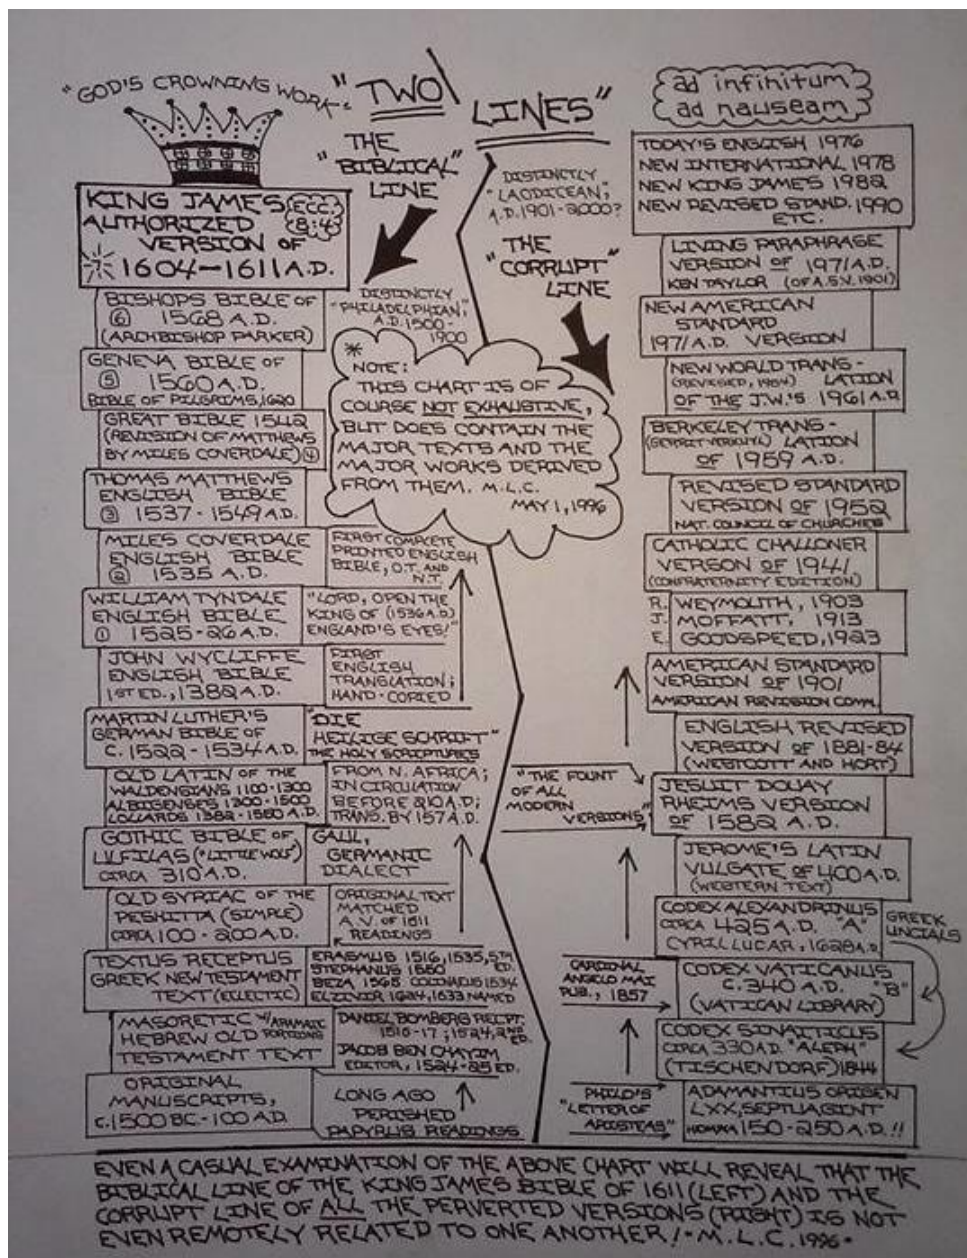 "GOD'S CROWNING WORK"
"TWO
LINES"
THE
"BIBLICAL"
LINE
KING JAMES
AUTHORIZED
VERSION OF
1604-1611 A.D.
ECC.
8:4
7
BISHOPS BIBLE OF
⑥ 1568 A.D.
(ARCHBISHOP PARKER)
DISTINCTLY
"PHILADELPHIAN",
A.D. 1500-
1900
GENEVA BIBLE OF
⑤ 1560 A.D.
BIBLE OF PILGRIMS, 1620
GREAT BIBLE 1542
(REVISION OF MATTHEWS
BY MILES COVERDALE) ④
THOMAS MATTHEWS
ENGLISH BIBLE
③ 1537-1549 A.D.
MILES COVERDALE
ENGLISH BIBLE
② 1535 A.D.
FIRST COMPLETE
PRINTED ENGLISH
BIBLE, O.T. AND
N.T.
WILLIAM TYNDALE
ENGLISH BIBLE
① 1525-26 A.D.
"LORD, OPEN THE
KING OF (1536 A.D.)
ENGLAND'S EYES!"
JOHN WYCLIFFE
ENGLISH BIBLE
1ST ED., 1382 A.D.
FIRST
ENGLISH
TRANSLATION;
HAND-COPIED
MARTIN LUTHER'S
GERMAN BIBLE OF
C. 1522-1534 A.D.
"DIE
HEILIGE SCHRIFT"
THE HOLY SCRIPTURES
OLD LATIN OF THE
WALDENSIANS 1100-1300
ALBIGENSES 1300-1500
LOLLARDS 1382-1550 A.D.
FROM N. AFRICA;
IN CIRCULATION
BEFORE 210 A.D;
TRANS. BY 157 A.D.
GOTHIC BIBLE OF
ULFILAS ("LITTLE WOLF")
CIRCA 310 A.D.
GAUL,
GERMANIC
DIALECT
OLD SYRIAC OF THE
PESHITTA (SIMPLE)
CIRCA 100-200 A.D.
ORIGINAL TEXT
MATCHED
A.V. OF 1611
READINGS
TEXTUS RECEPTUS
GREEK NEW TESTAMENT
TEXT (ECLECTIC)
ERASMUS 1516, 1535, 5TH ED.
STEPHANUS 1550
BEZA 1565 COLINAEUS 1534
ELZIVIR 1624, 1633 NAMED
MASORETIC W/ARAMAIC PORTIONS
HEBREW OLD
TESTAMENT TEXT
DANIEL BOMBERG RECPT.
1516-17; 1524, 2ND ED.
JACOB BEN CHAYIM
EDITOR, 1524-25 ED.
ORIGINAL
MANUSCRIPTS,
C. 1500 BC-100 A.D.
LONG AGO
PERISHED
PAPYRUS READINGS
*
NOTE:
THIS CHART IS OF
COURSE NOT EXHAUSTIVE,
BUT DOES CONTAIN THE
MAJOR TEXTS AND THE
MAJOR WORKS DERIVED
FROM THEM. M.L.C.
MAY 1, 1996
DISTINCTLY
"LAODICEAN",
A.D. 1901-2000?
THE
"CORRUPT"
LINE
ad infinitum
ad nauseam
TODAY'S ENGLISH 1976
NEW INTERNATIONAL 1978
NEW KING JAMES 1982
NEW REVISED STAND. 1990
ETC.
LIVING PARAPHRASE
VERSION OF 1971 A.D.
KEN TAYLOR (OF A.S.V. 1901)
NEW AMERICAN
STANDARD
1971 A.D. VERSION
NEW WORLD TRANS-
(REVISED, 1984) LATION
OF THE J.W.'S 1961 A.D.
BERKELEY TRANS-
(GERRIT VERKUYL) LATION
OF 1959 A.D.
REVISED STANDARD
VERSION OF 1952
NAT. COUNCIL OF CHURCHES
CATHOLIC CHALLONER
VERSON OF 1941
(CONFRATERNITY EDITION)
R. WEYMOUTH, 1903
J. MOFFATT, 1913
E. GOODSPEED, 1923
AMERICAN STANDARD
VERSION OF 1901
AMERICAN REVISION COMM.
ENGLISH REVISED
VERSION OF 1881-84
(WESTCOTT AND HORT)
"THE FOUNT
OF ALL
MODERN
VERSIONS"
JESUIT DOUAY
RHEIMS VERSION
OF 1582 A.D.
JEROME'S LATIN
VULGATE OF 400 A.D.
(WESTERN TEXT)
CODEX ALEXANDRINUS
CIRCA 425 A.D. "A"
CYRIL LUCAR, 1628 A.D.
GREEK
UNCIALS
CARDINAL
ANGELO MAI
PUB., 1857
CODEX VATICANUS
C. 340 A.D. "B"
(VATICAN LIBRARY)
CODEX SINAITICUS
CIRCA 330 A.D. "ALEPH"
(TISCHENDORF) 1844
PHILO'S
"LETTER OF
ARISTEAS"
ADAMANTIUS ORIGEN
LXX, SEPTUAGINT
150-250 A.D.!!
EVEN A CASUAL EXAMINATION OF THE ABOVE CHART WILL REVEAL THAT THE
BIBLICAL LINE OF THE KING JAMES BIBLE OF 1611 (LEFT) AND THE
CORRUPT LINE OF ALL THE PERVERTED VERSIONS (RIGHT) IS NOT
EVEN REMOTELY RELATED TO ONE ANOTHER! - M.L.C. 1996-